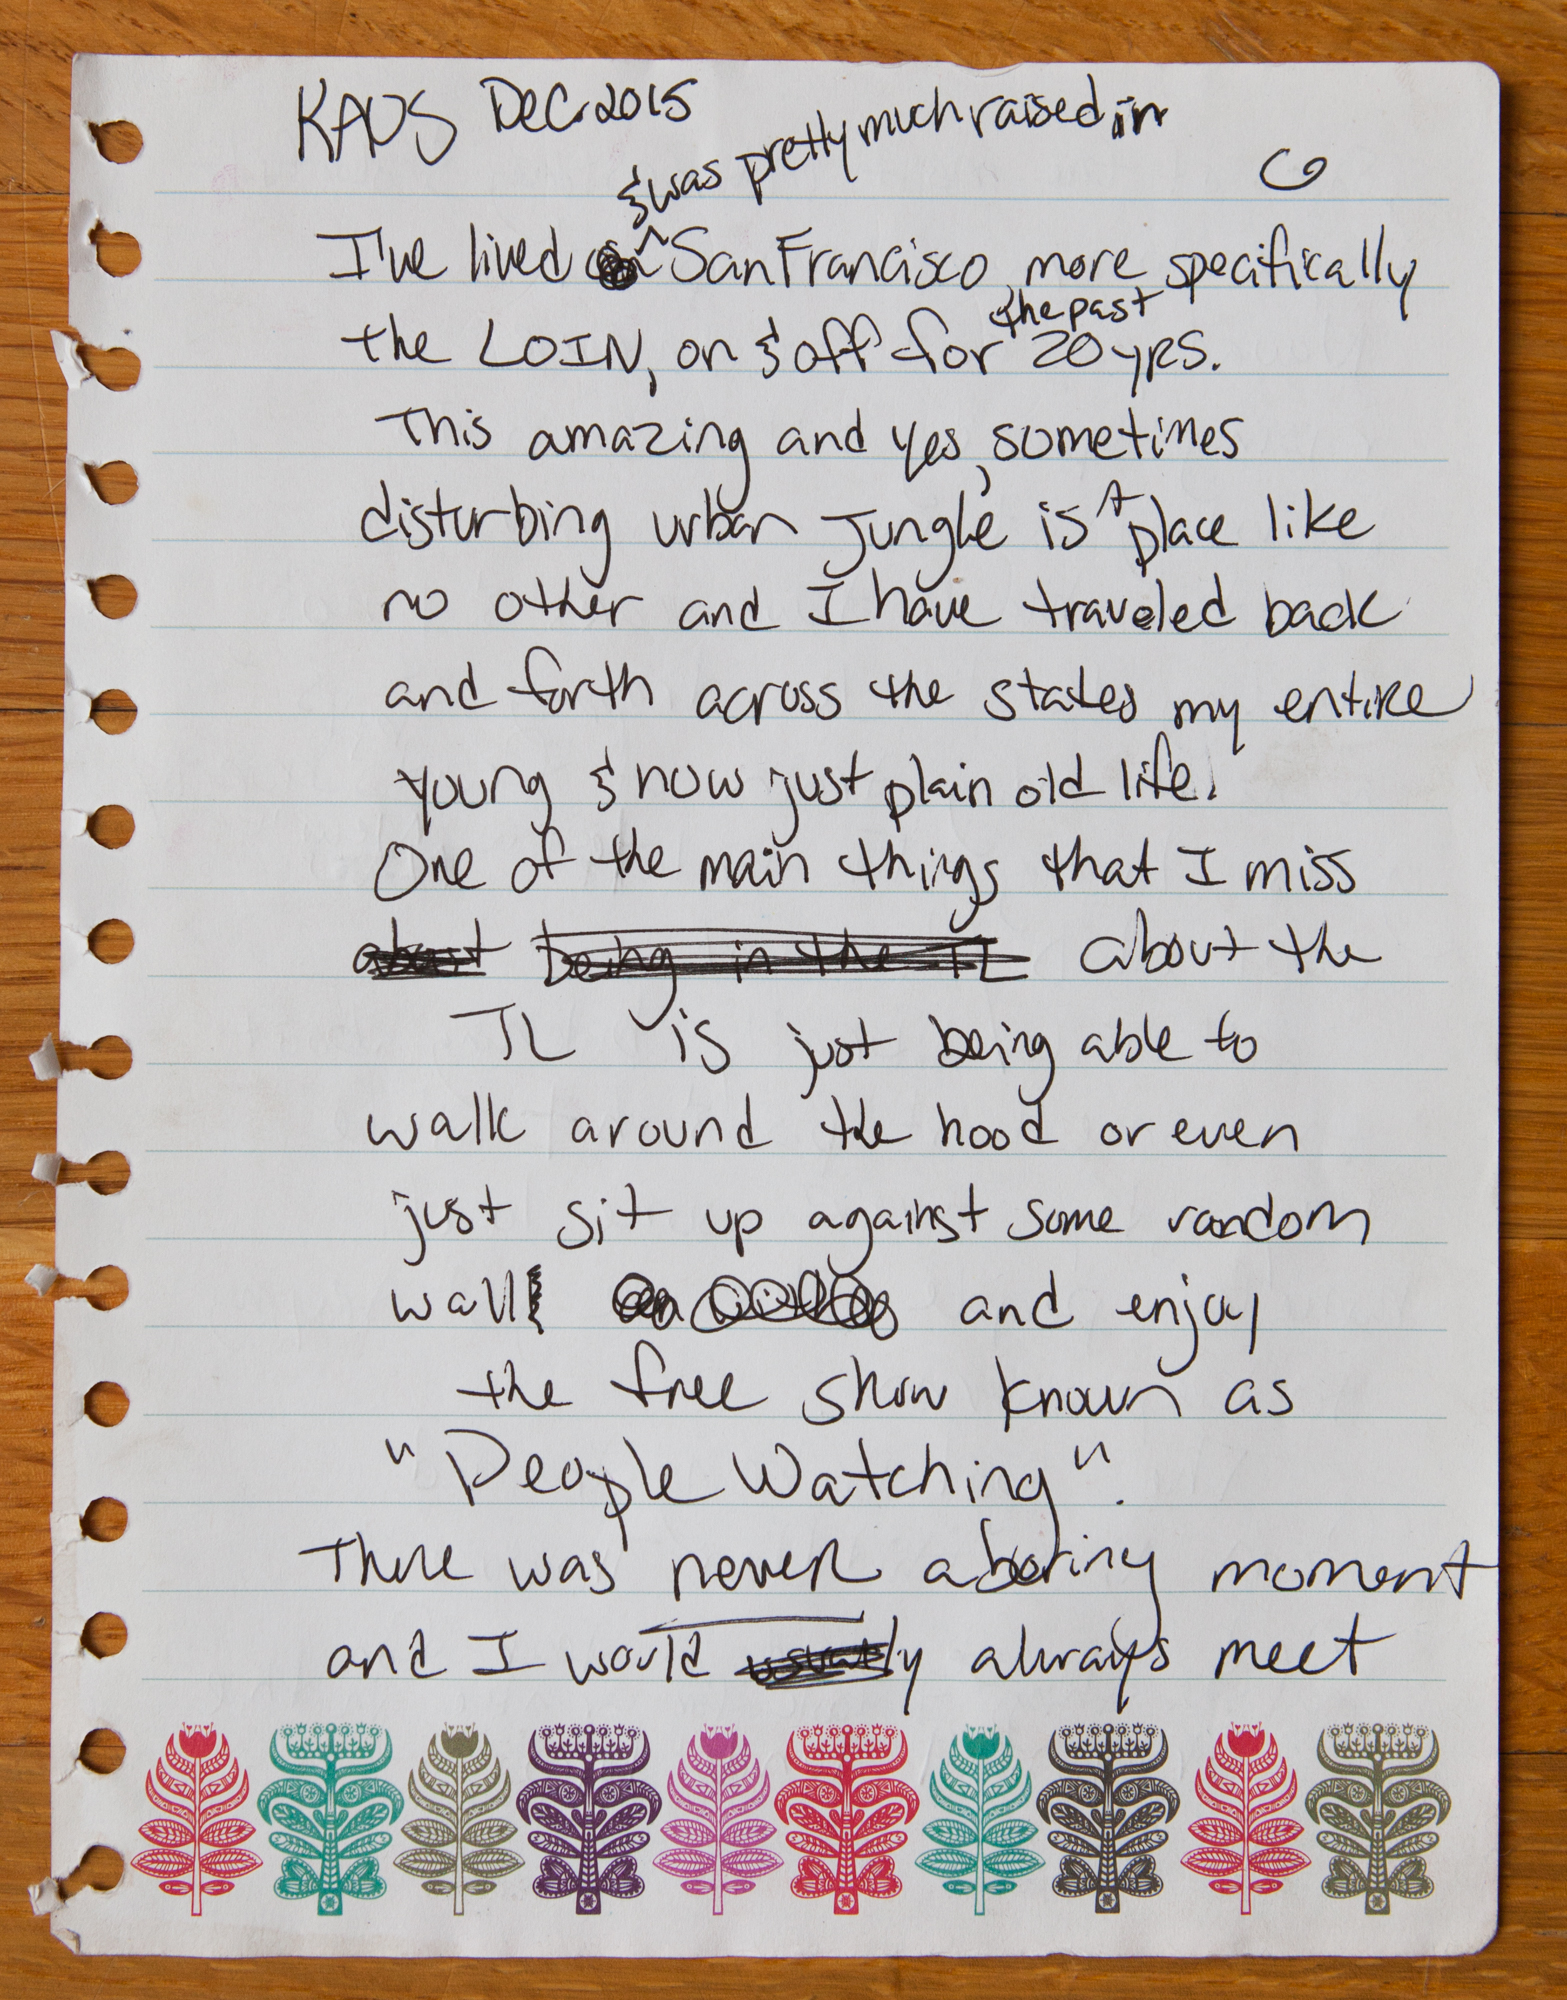 KAOS Dec. 2015
& was pretty much raised in
I've lived ^ San Francisco, more specifically
the past
the LOIN, on & off for 20 yrs.
This amazing and yes, sometimes
disturbing urban jungle is ^A place like
no other and I have traveled back
and forth across the states my entire
young & now just plain old life.
One of the main things that I miss
about being in the TL about the
TL is just being able to
walk around the hood or even
just sit up against some random
wall and enjoy
the free show known as
"People Watching".
There was never a boring moment
and I would usually always meet